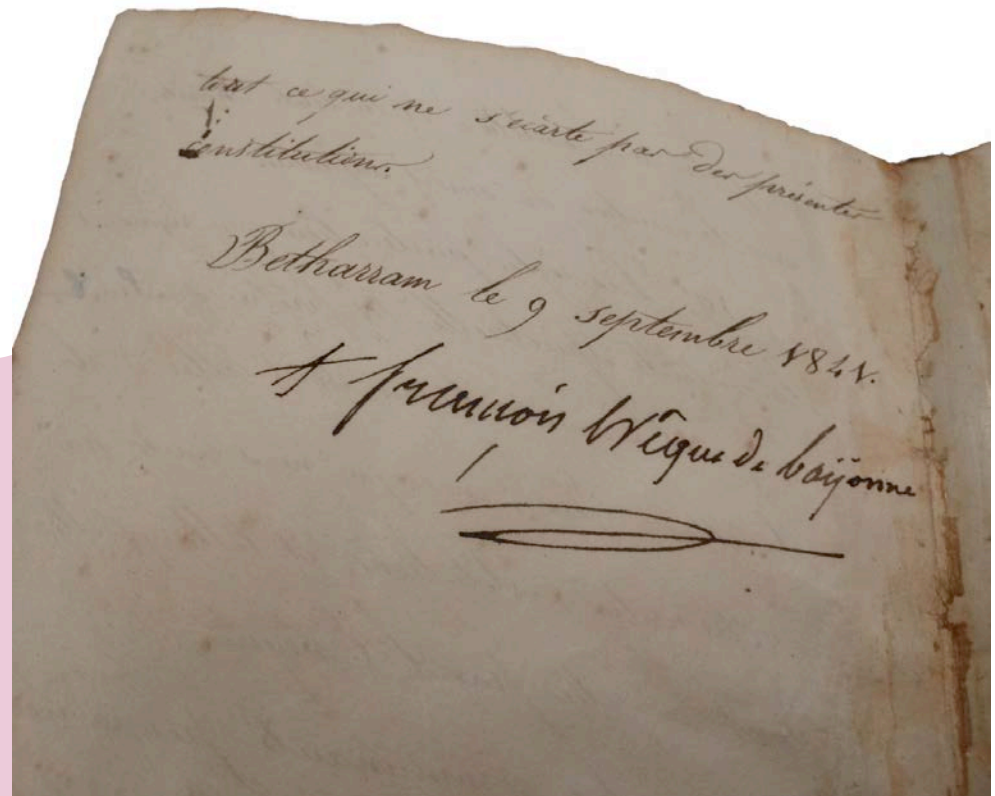 tout ce qui ne s'écarte pas des présentes
constitutions.
Betharram le 9 septembre 1841.
+ françois Évêque de bayonne